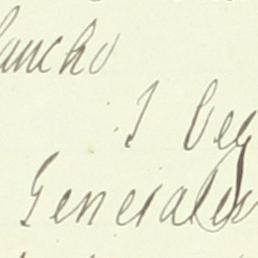 ancho
I beg
Generales